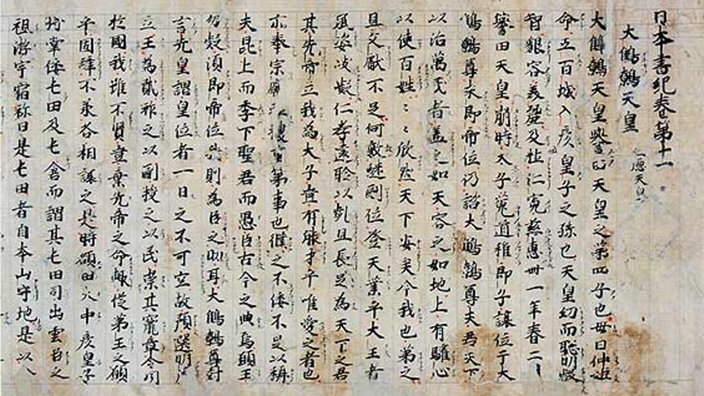 日本書紀巻第十一
大鷦鷯天皇 仁德天皇
大鷦鷯天皇譽田天皇之第四子也母曰仲姬
命五百城入彦皇子之孫也天皇幼而聡明叡
智貌容美麗及壮仁寛慈惠卌一年春二
譽田天皇崩時太子菟道稚郎子讓位于大
鷦鷯尊未即帝位仍諮大鷦鷯尊夫為天下
以治萬民者盖之如天容之如地上有驩心
以使百姓〻〻欣然天下安矣今我也弟之
且文獻不足何敢継嗣位登天業乎大王者
風姿岐嶷仁孝遠聆以齒且長足為天下之君
其先帝立我為太子豈有能才乎唯愛之者也
亦奉宗廟社稷重事也僕之不侫不足以稱
夫昆上而季下聖君而愚臣古今之典焉願王
勿疑須即帝位我則為臣之助耳大鷦鷯尊對
言先皇謂皇位者一日之不可空故預選明
立王為貳祚之以嗣授之以民崇其寵章令聞
於國我雖不賢豈棄先帝之命輙從弟王之願
乎固辞不承各相讓之是時額田大中彦皇子
将掌倭屯田及屯倉而謂其屯田司出雲臣之
祖淤宇宿祢曰是屯田者自本山守地是以今